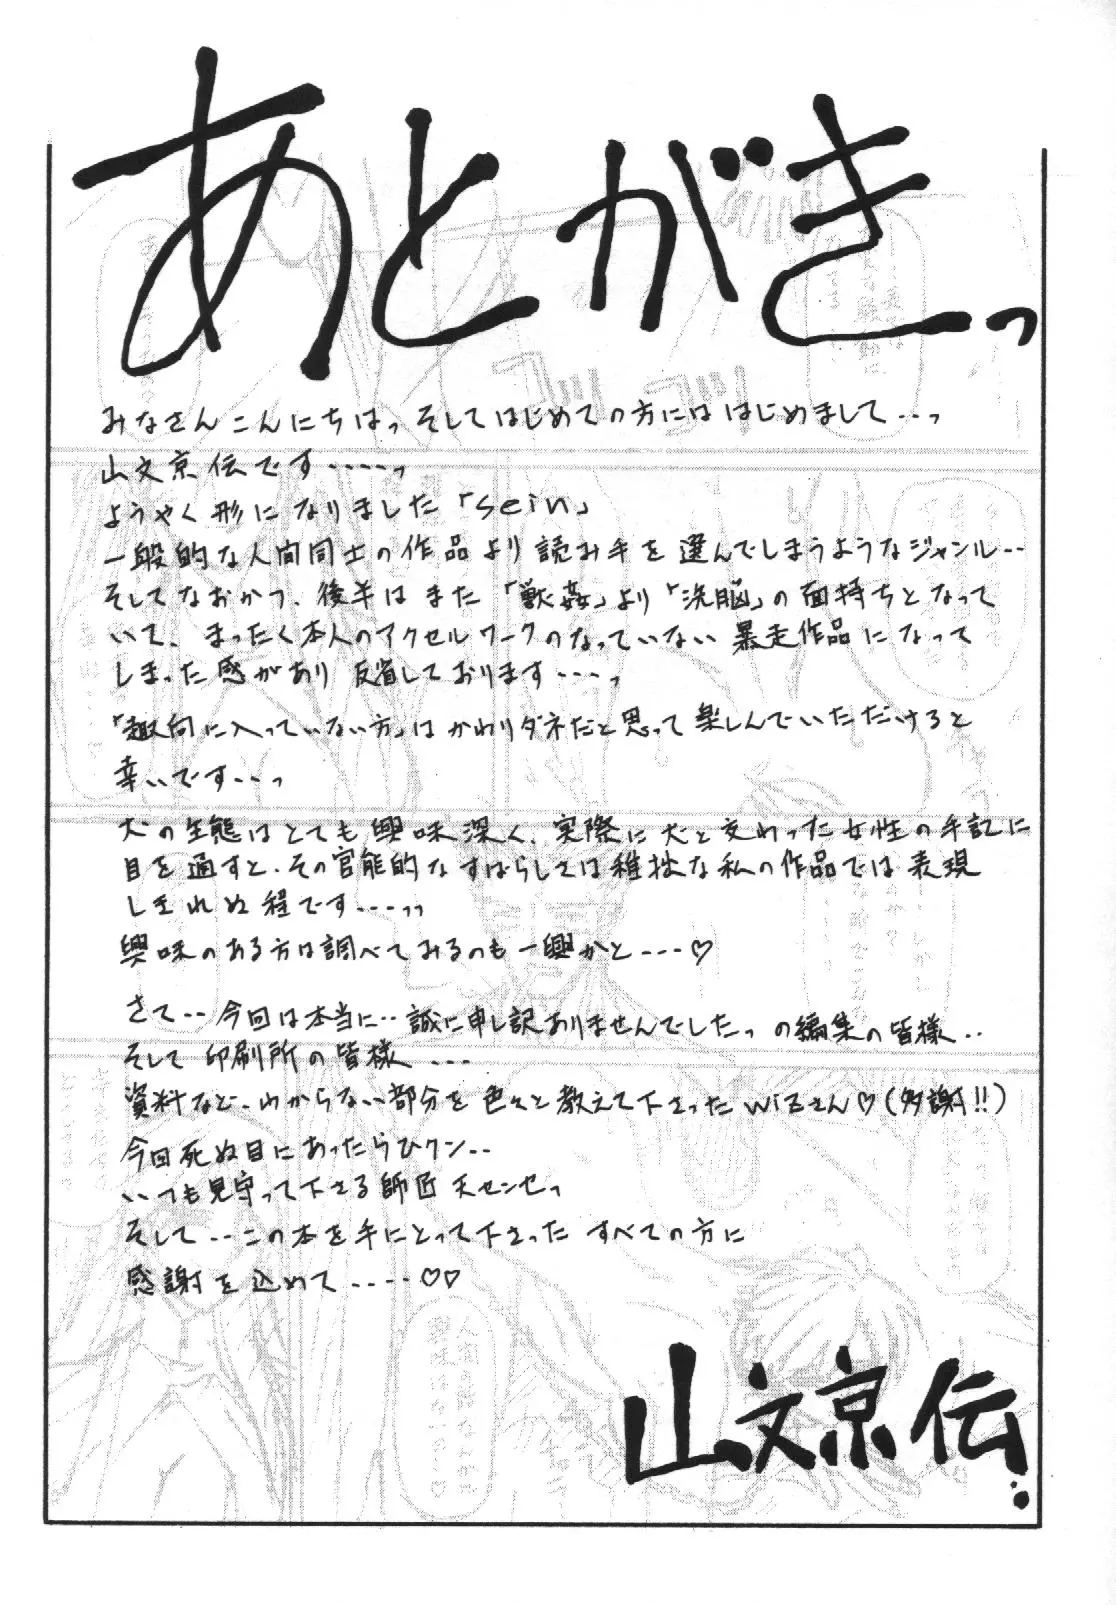 あとがきっ
みなさんこんにちはっ そしてはじめての方には はじめまして‥っ
山文京伝です‥‥っ
ようやく形になりました「sein」
一般的な人間同士の作品より読み手を選んでしまうようなジャンル‥
そしてなおかつ、後半はまた「獣姦」より「洗脳」の面持ちとなって
いて、まったく本人のアクセルワークのなっていない暴走作品になって
しまった感があり 反省しております‥‥っ
「趣向に入っていない方」は かわりダネだと思って楽しんでいただけると
幸いです‥‥っ
犬の生態はとても興味深く、実際に犬と交わった女性の手記に
目を通すと、その官能的なすばらしさは稚拙な私の作品では表現
しきれぬ程です‥‥っっ
興味のある方は調べてみるのも一興かと‥‥♡
さて‥今回は本当に‥誠に申し訳ありませんでしたっ の編集の皆様‥
そして印刷所の皆様‥‥
資料など、わからない部分を色々と教えて下さったwizさん♡(多謝!!)
今回死ぬ目にあったらひクン‥
いつも見守って下さる師匠 天センセっ
そして‥この本を手にとって下さった すべての方に
感謝を込めて‥‥♡♡
山文京伝